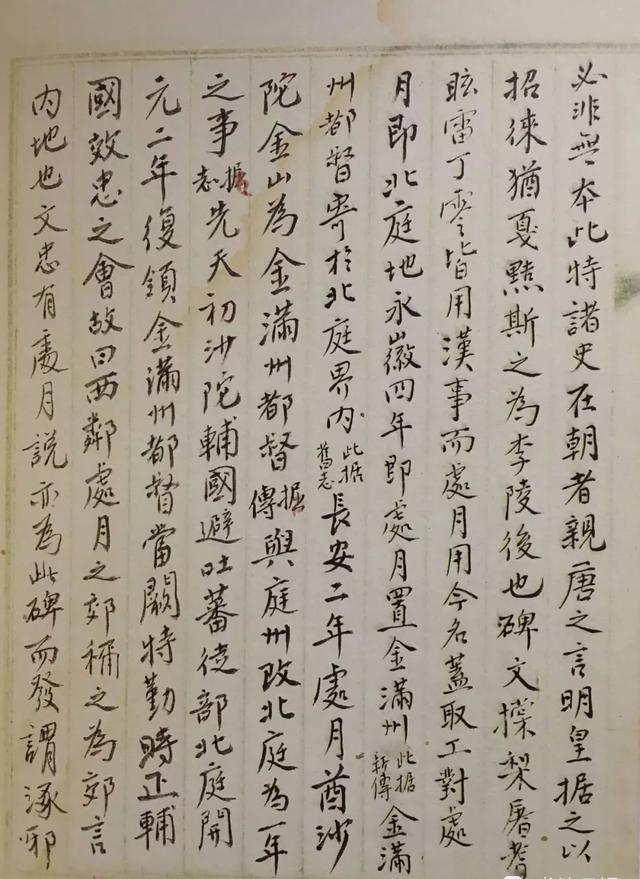 必非無本此特諸史在朝者親唐之言明皇据之以
招徠猶戛黠斯之為李陵後也碑文撑梨屠耆
眩雷丁零皆用漢事而處月用今名蓋取工對處
月即北庭地永徽四年即處月置金滿州此据新傳金滿
州都督寄於北庭界內此据舊志長安二年處月酋沙
陀金山為金滿州都督据傳與庭州改北庭為一年
之事据志先天初沙陀輔國避吐蕃徙部北庭開
元二年復領金滿州都督當闕特勤時正輔
國效忠之會故曰西鄰處月之郊稱之為郊言
內地也文忠有處月說亦為此碑而發謂涿邪